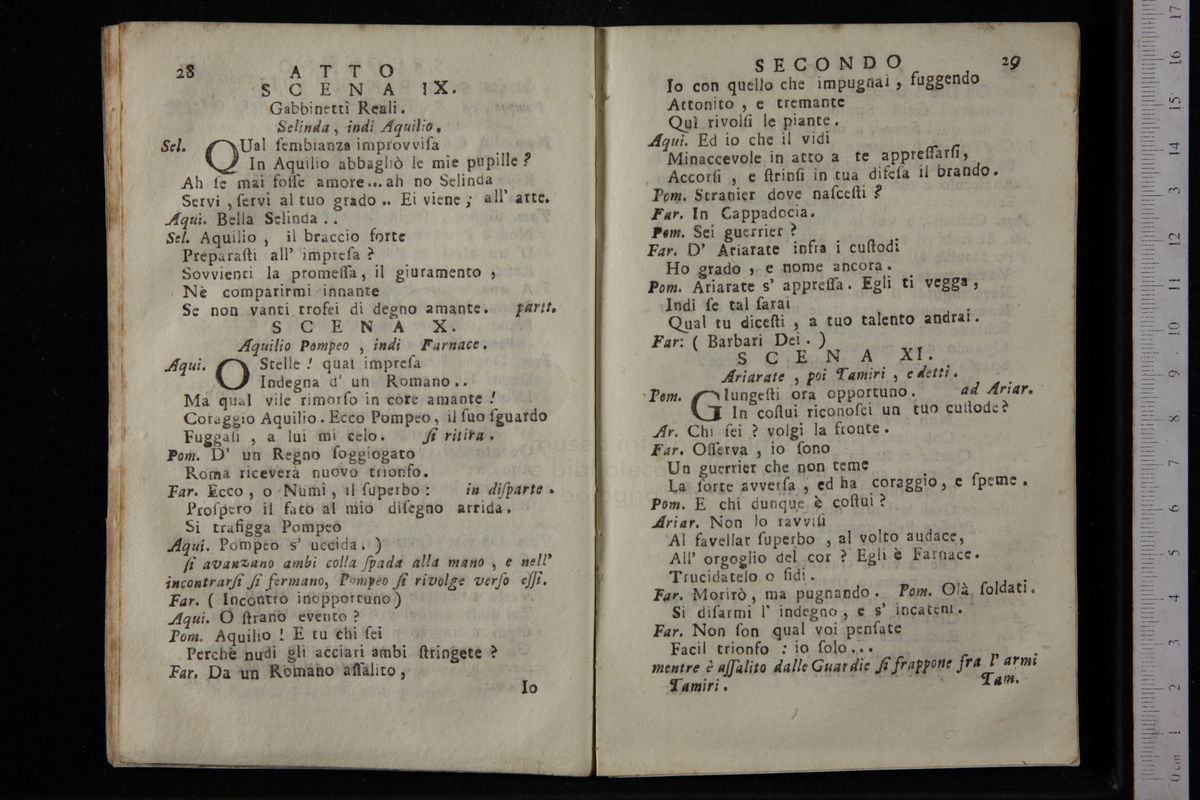 28 ATTO
SCENA IX.
Gabbinetti Reali.
Selinda, indi Aquilio.
Sel. QUal ſembianza improvviſa
In Aquilio abbagliò le mie pupille ?
Ah ſe mai foſſe amore... ah no Selinda
Servi , ſervi al tuo grado .. Ei viene ; all' arte.
Aqui. Bella Selinda . .
Sel. Aquilio , il braccio forte
Preparaſti all' impreſa ?
Sovvienti la promeſſa, il giuramento ,
Nè comparirmi innante
Se non vanti trofei di degno amante. partt.
SCENA X.
Aquilio Pompeo , indi Farnace.
Aqui. O Stelle ! qual impreſa
Indegna d' un Romano ..
Ma qual vile rimorſo in core amante !
Coraggio Aquilio. Ecco Pompeo, il ſuo ſguardo
Fuggaſi , a lui mi celo. ſi ritira .
Pom. D' un Regno ſoggiogato
Roma riceverà nuovo trionfo.
Far. Ecco , o Numi , il ſuperbo : in diſparte .
Proſpero il fato al mio diſegno arrida.
Si trafigga Pompeo
Aqui. Pompeo s' uccida. )
ſi avanzano ambi colla ſpada alla mano , e nell'
incontrarſi ſi fermano, Pompeo ſi rivolge verſo eſſi.
Far. ( Incontro inopportuno )
Aqui. O ſtrano evento ?
Pom. Aquilio ! E tu chi ſei
Perchè nudi gli acciari ambi ſtringete ?
Far. Da un Romano aſſalito ,
Io
SECONDO 29
Io con quello che impugnai , fuggendo
Attonito , e tremante
Quì rivolſi le piante .
Aqui. Ed io che il vidi
Minaccevole in atto a te appreſſarſi,
Accorſi , e ſtrinſi in tua difeſa il brando.
Pom. Stranier dove naſceſti ?
Far. In Cappadocia.
Pom. Sei guerrier ?
Far. D' Ariarate infra i cuſtodi
Ho grado , e nome ancora .
Pom. Ariarate s' appreſſa . Egli ti vegga ,
Indi ſe tal ſarai
Qual tu diceſti , a tuo talento andrai.
Far: ( Barbari Dei . )
SCENA XI.
Ariarate , poi Tamiri , e detti .
Pom. GIungeſti ora opportuno . ad Ariar.
In coſtui riconoſci un tuo cuſtode ?
Ar. Chi ſei ? volgi la fronte .
Far. Oſſerva , io ſono
Un guerrier che non teme
La ſorte avverſa , ed ha coraggio, e ſpeme .
Pom. E chi dunque è coſtui ?
Ariar. Non lo ravviſi
Al favellar ſuperbo , al volto audace,
All' orgoglio del cor ? Egli è Farnace.
Trucidatelo o fidi .
Far. Morirò , ma pugnando . Pom. Olà ſoldati.
Si diſarmi l' indegno , e s' incateni .
Far. Non ſon qual voi penſate
Facil trionfo : io ſolo...
mentre è aſſalito dalle Guardie ſi frappone fra l' armi
Tamiri . Tam.